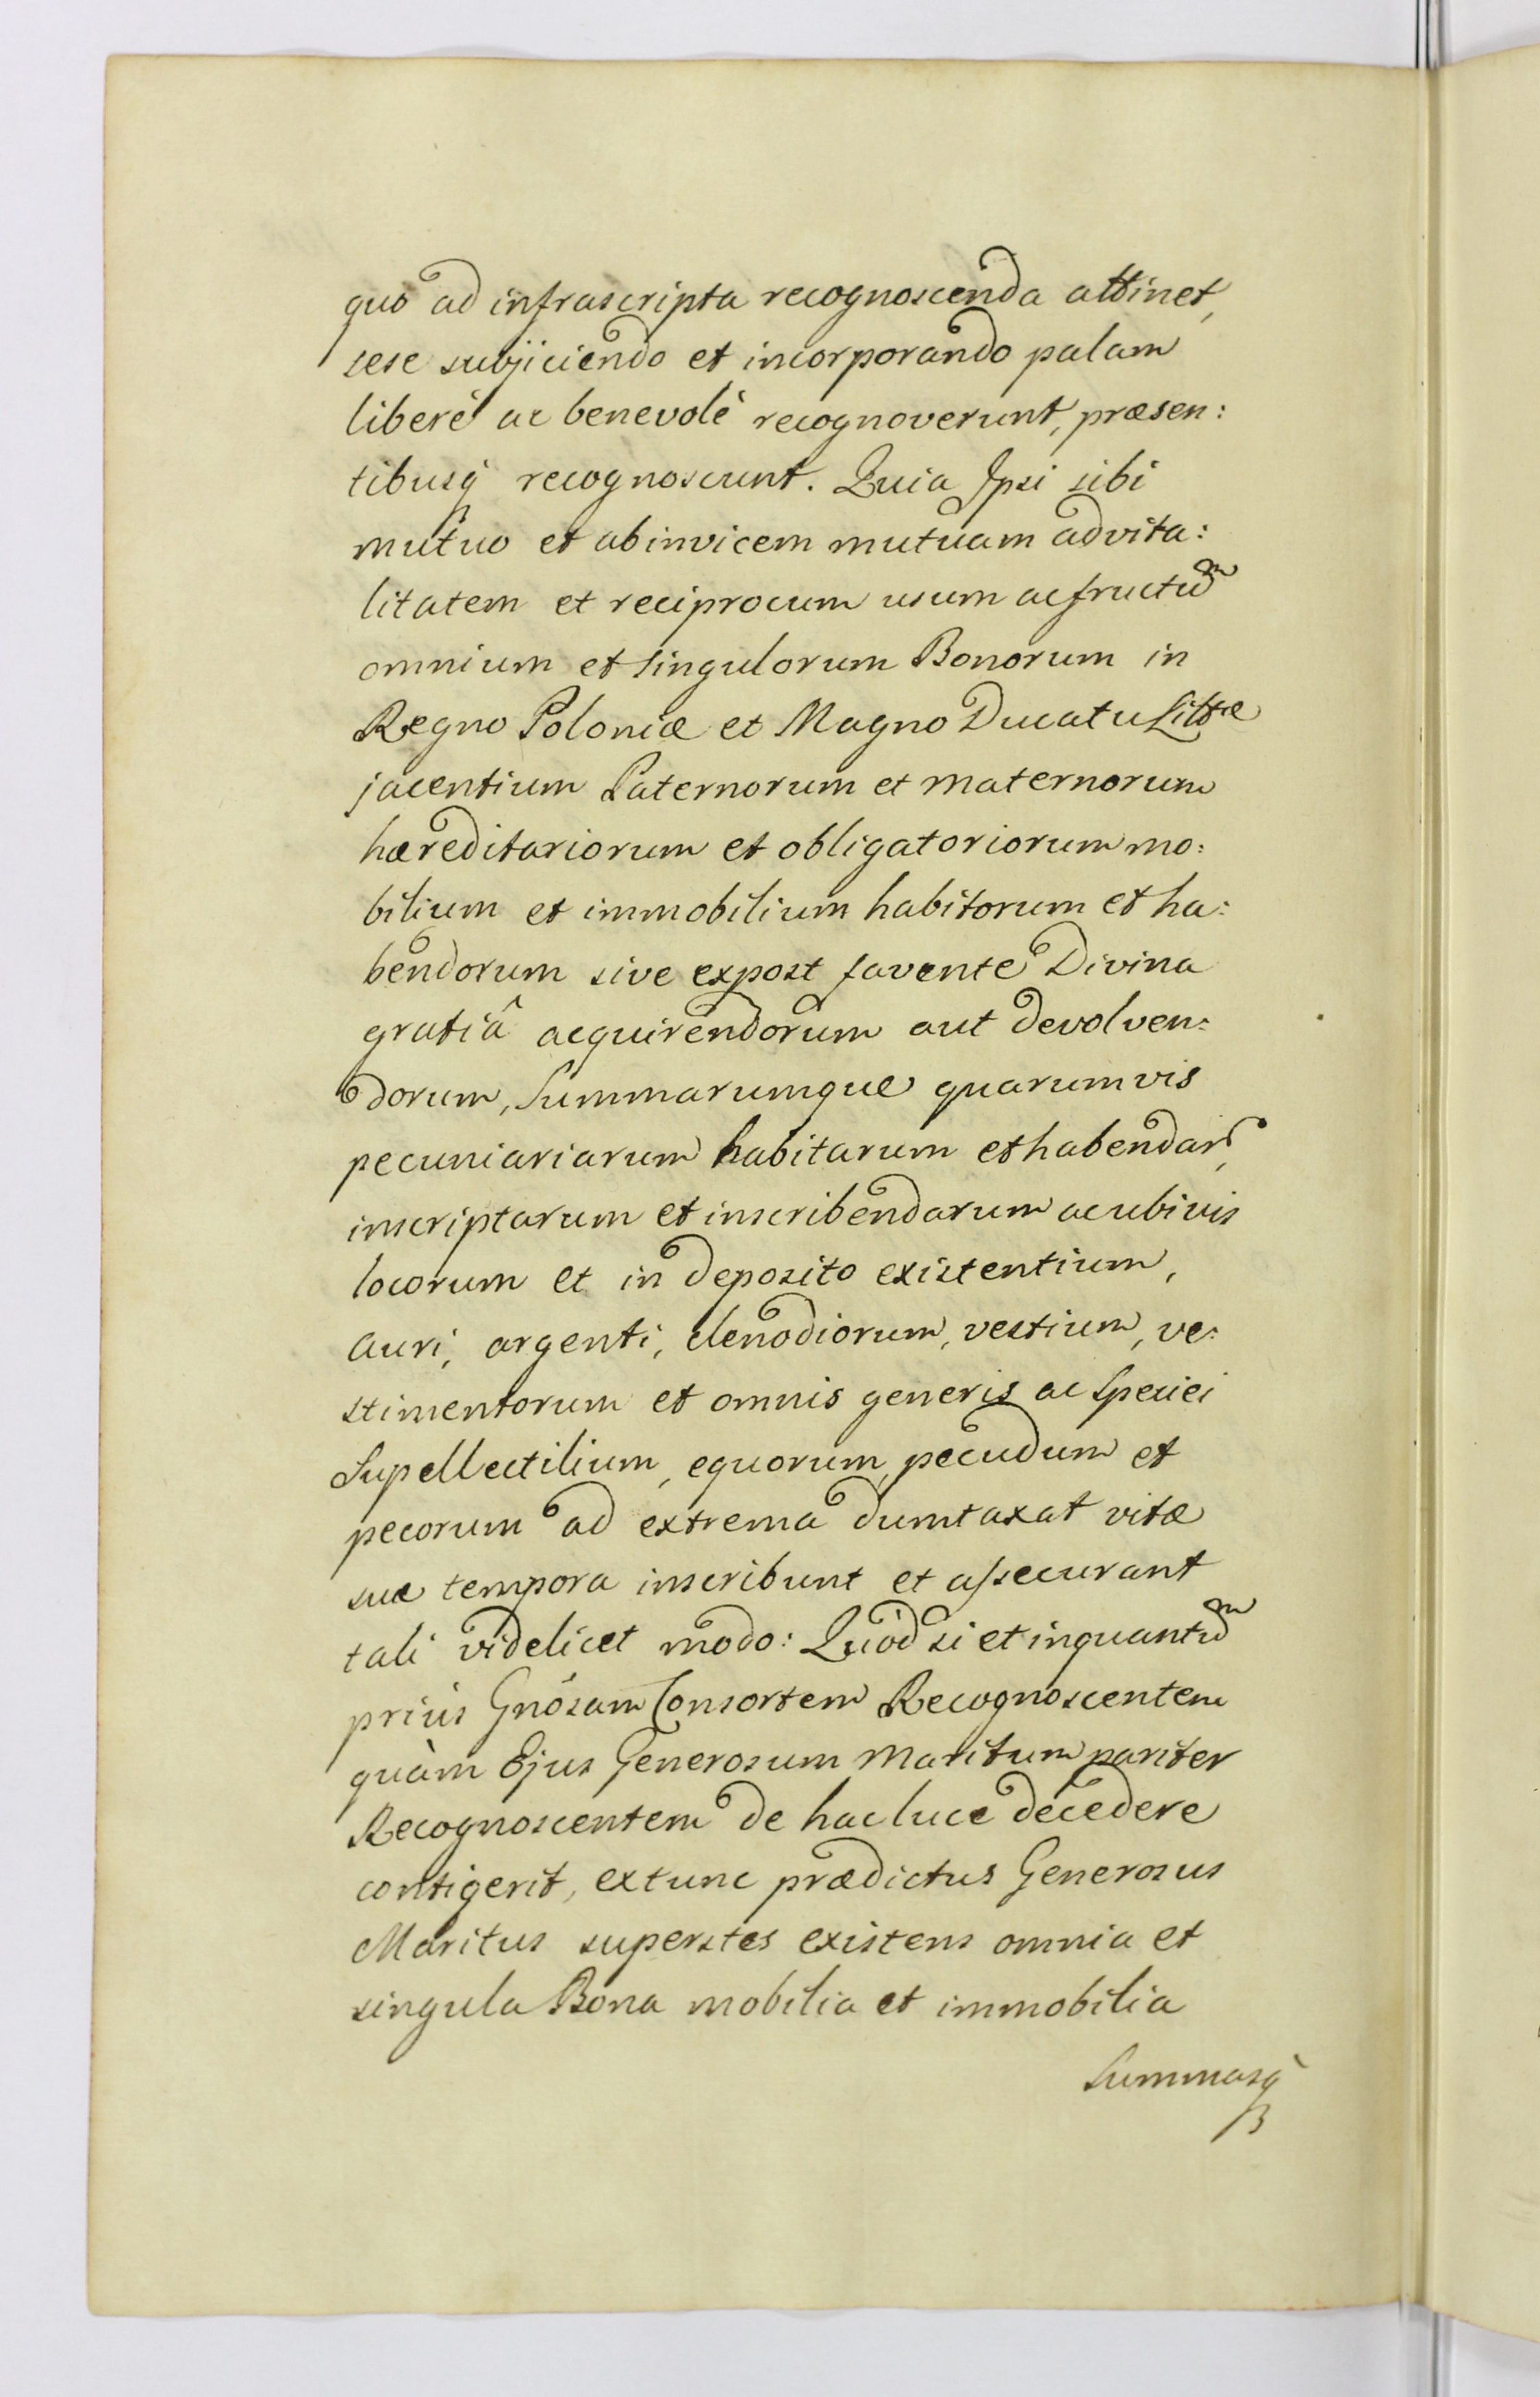 quo ad infrascripta recognoscenda attinet,
sese subjiciendo et incorporando palam
liberè ac benevolè recognoverunt, præsen:
tibusq̃ recognoscunt. Quia Ipsi sibi
mutuo et abinvicem mutuam advita:
litatem et reciprocum usum ac fructũm
omnium et singulorum Bonorum in
Regno Poloniæ et Magno Ducatu Littæ
jacentium Paternorum et maternorum
hæreditariorum et obligatoriorum mo:
bilium et immobilium habitorum et ha:
bendorum sive expost favente Divina
gratiâ acquirendorum aut devolven:
dorum, Summarumque quarumvis
pecuniariarum habitarum et habendar̃,
inscriptarum et inscribendarum ac ubivis
locorum et in deposito existentium,
auri, argenti, clenodiorum, vestium, ve:
stimentorum et omnis generis ac Speciei
Supellectilium, equorum, pecudum et
pecorum ad extrema dumtaxat vitæ
suæ tempora inscribunt et assecurant
tali videlicet modo: Quòd si et inquantũm
priùs Gnõsam Consortem Recognoscentem
quàm Ejus Generosum Maritum pariter
Recognoscentem de hac luce decedere
contigerit, extunc prædictus Generosus
Maritus superstes existens omnia et
singula Bona mobilia et immobilia
Summasq̃